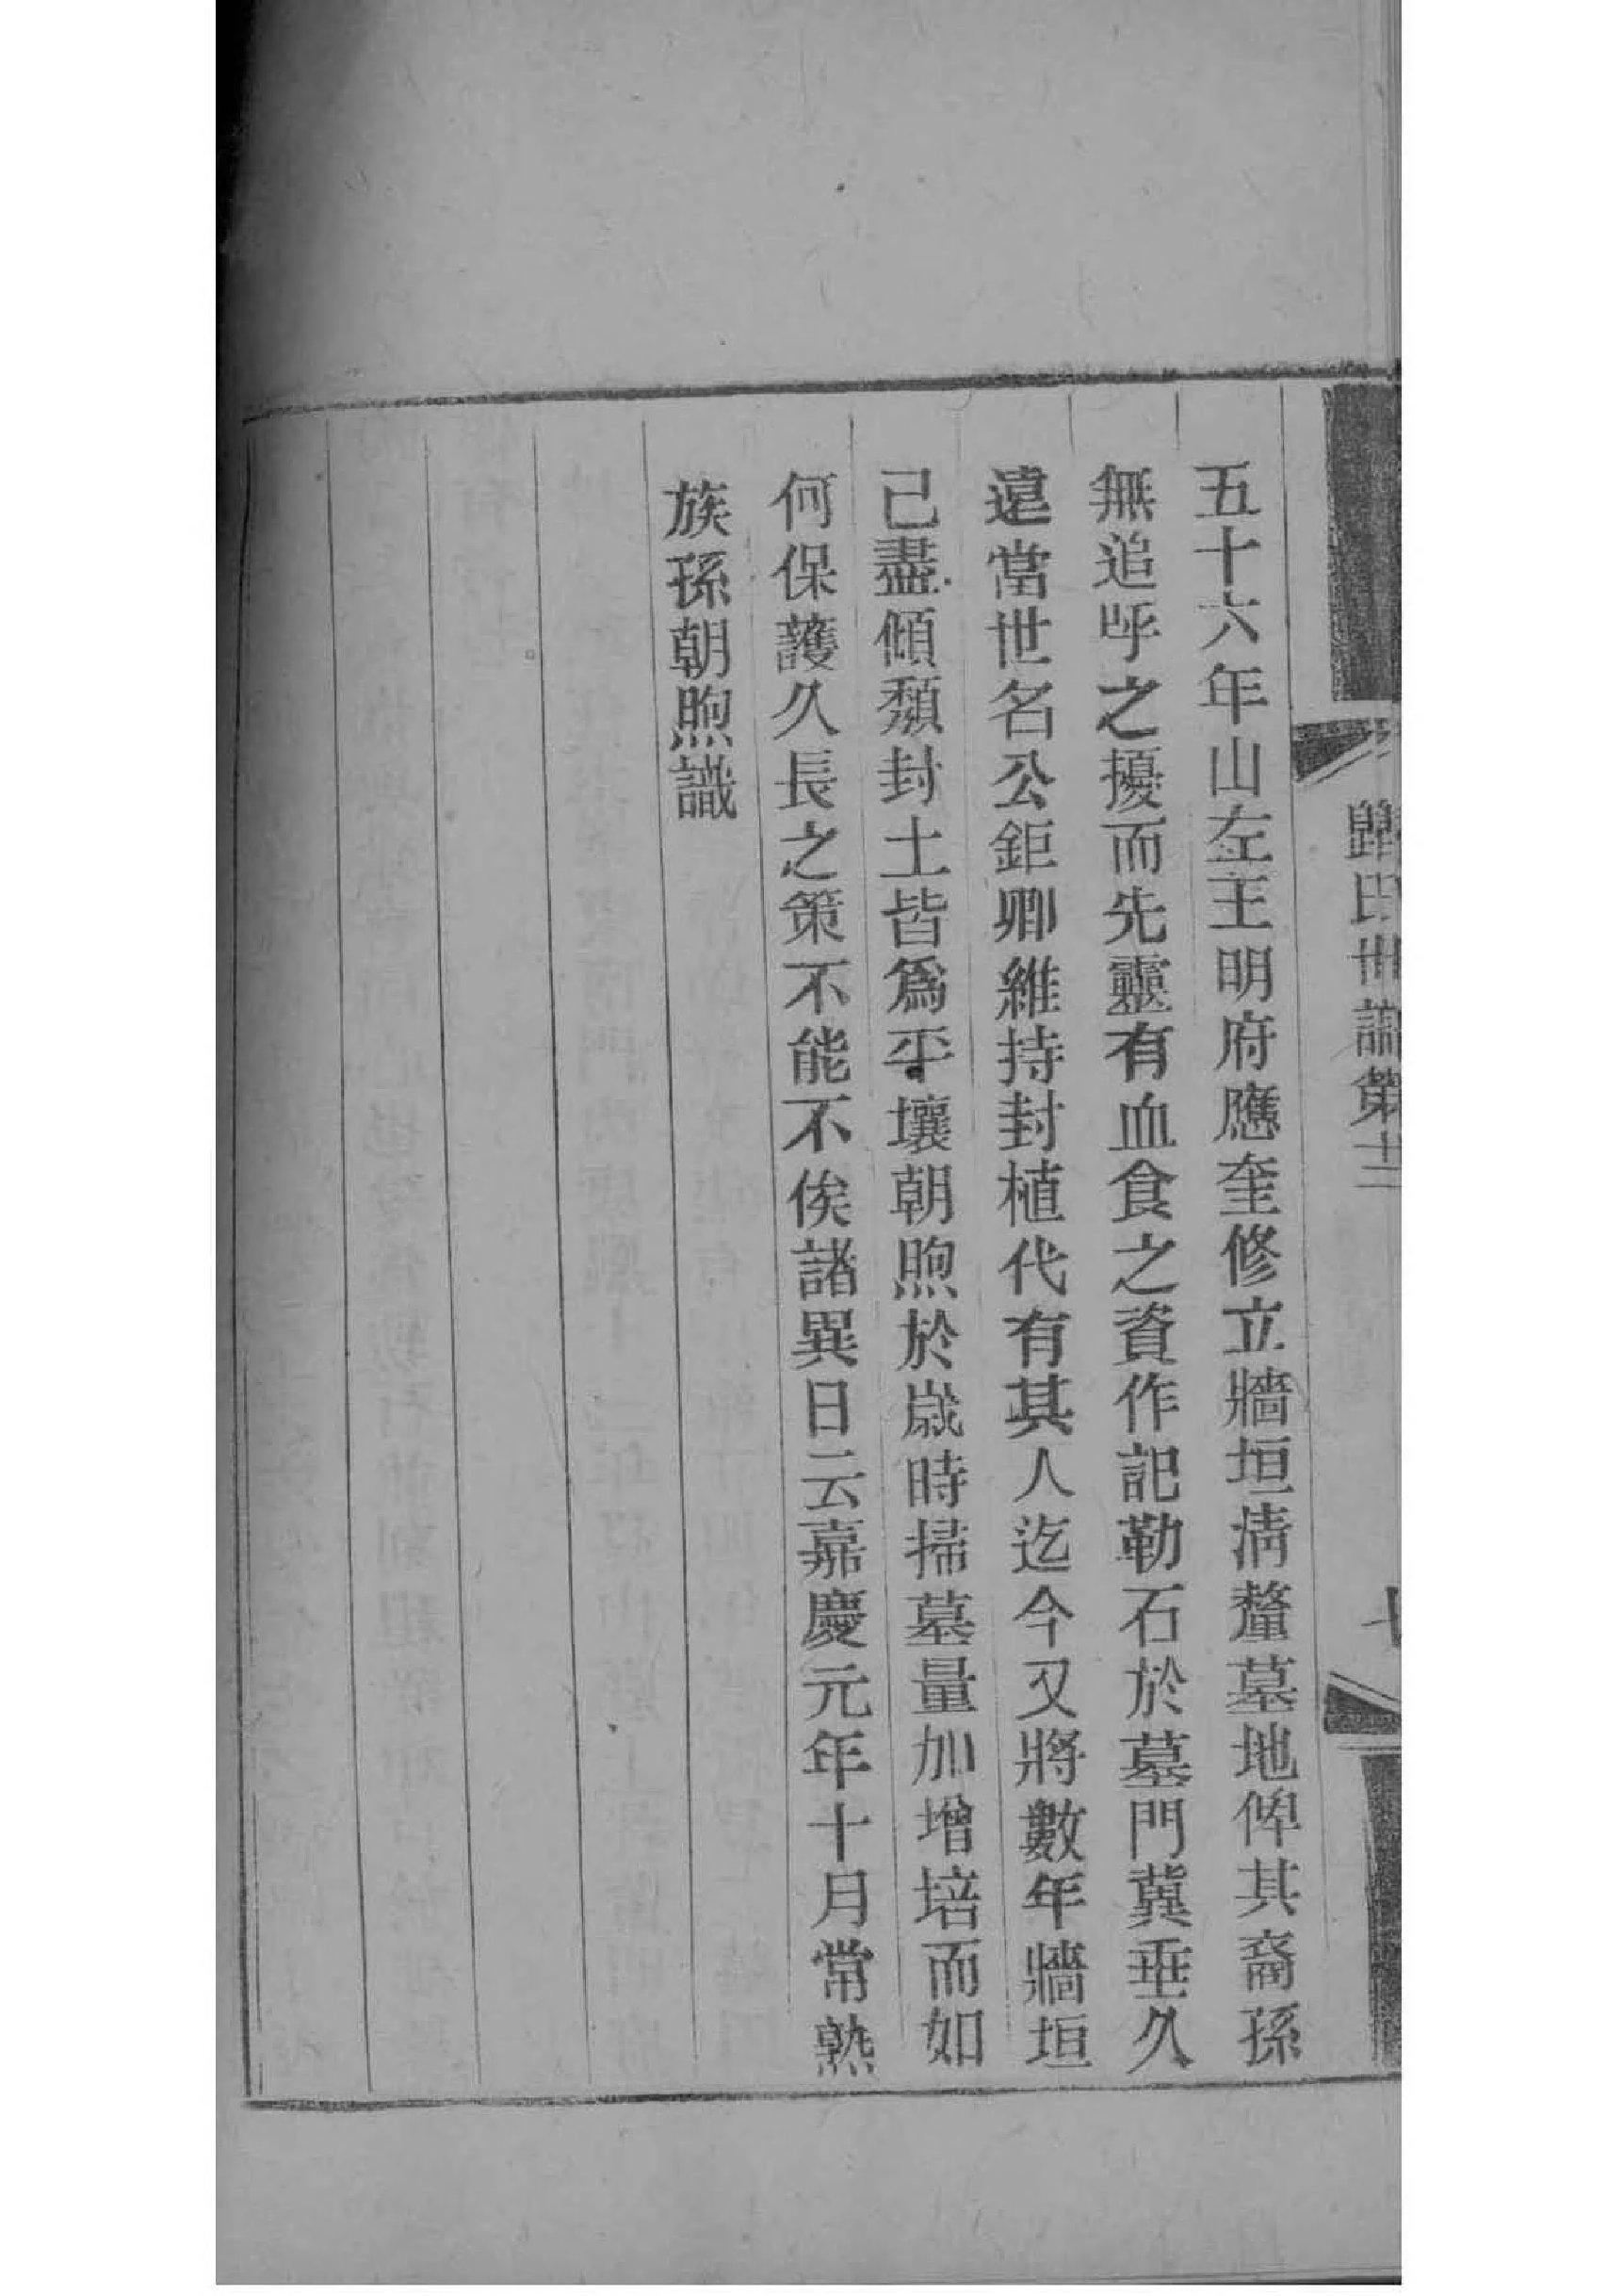 歸氏世譜第十二
七
五十六年山左王明府應奎修立牆垣清釐墓地俾其裔孫
無追呼之擾而先靈有血食之資作記勒石於墓門冀垂久
遠當世名公鉅卿維持封植代有其人迄今又將數年牆垣
已盡傾頽封土皆爲平壤朝煦於歲時掃墓量加增培而如
何保護久長之策不能不俟諸異日云嘉慶元年十月常熟
族孫朝煦識